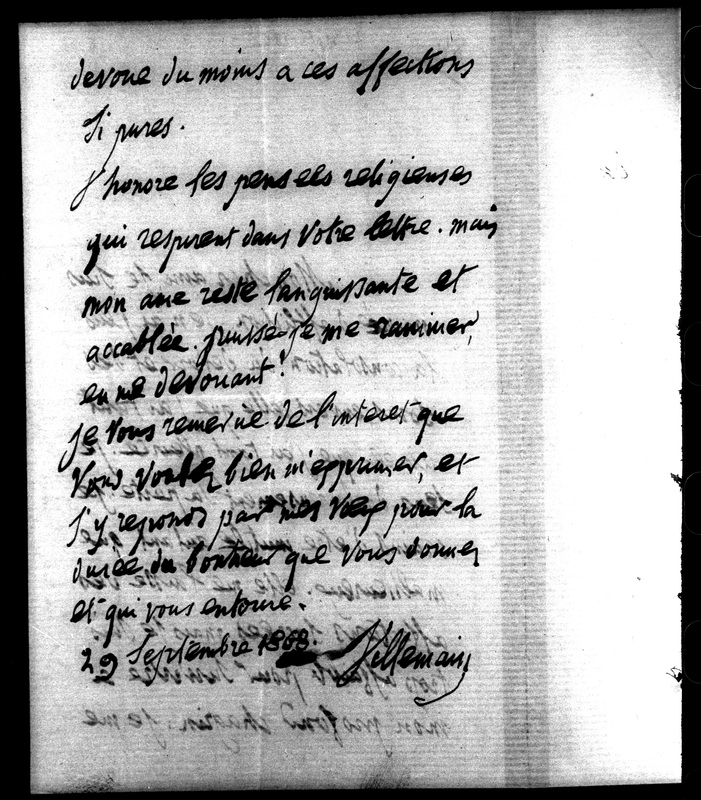 devoue du moins a ces affections
si pures.
J'honore les pensees religieuses
qui respirent dans votre lettre. mais
mon ame reste languissante et
accablée. puissé-je me ranimer,
en me devouant!
je vous remercie de l'interet que
vous voulez bien m'exprimer, et
j'y reponds par mes voeux pour la
durée du bonheur que vous donnez
et qui vous entoure.
29 Septembre Villemain